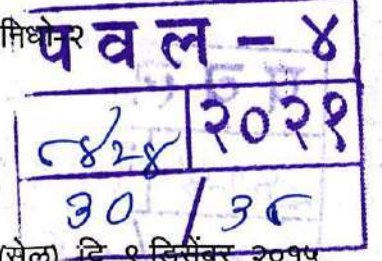 पवल - ४
८४२४ २०२१
३० / ३८
(सेल) दि. ९ डिसेंबर २०१५